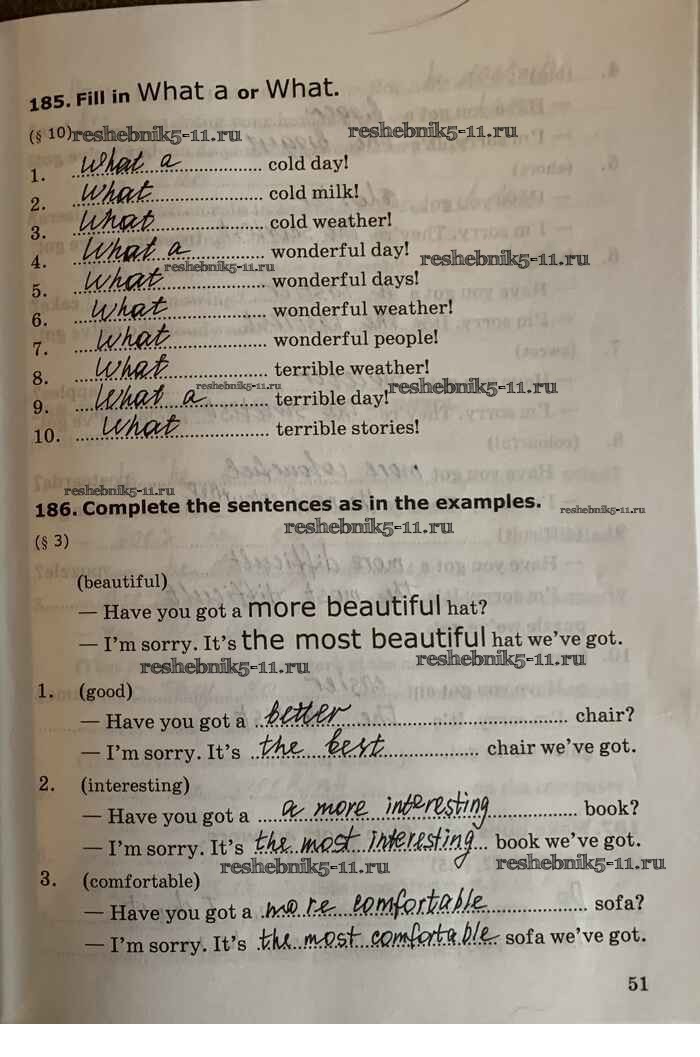 185. Fill in What a or What.
(§ 10) reshebnik5-11.ru reshebnik5-11.ru
1. What a cold day!
2. What cold milk!
3. What cold weather!
4. What a wonderful day! reshebnik5-11.ru
reshebnik5-11.ru
5. What wonderful days!
6. What wonderful weather!
7. What wonderful people!
8. What terrible weather!
reshebnik5-11.ru reshebnik5-11.ru
9. What a terrible day!
10. What terrible stories!
reshebnik5-11.ru
186. Complete the sentences as in the examples. reshebnik5-11.ru
reshebnik5-11.ru
(§ 3)
(beautiful)
— Have you got a more beautiful hat?
— I'm sorry. It's the most beautiful hat we've got.
reshebnik5-11.ru reshebnik5-11.ru
1. (good)
— Have you got a better chair?
— I'm sorry. It's the best chair we've got.
2. (interesting)
— Have you got a a more interesting book?
— I'm sorry. It's the most interesting book we've got.
reshebnik5-11.ru reshebnik5-11.ru
3. (comfortable)
— Have you got a more comfortable sofa?
— I'm sorry. It's the most comfortable sofa we've got.
51